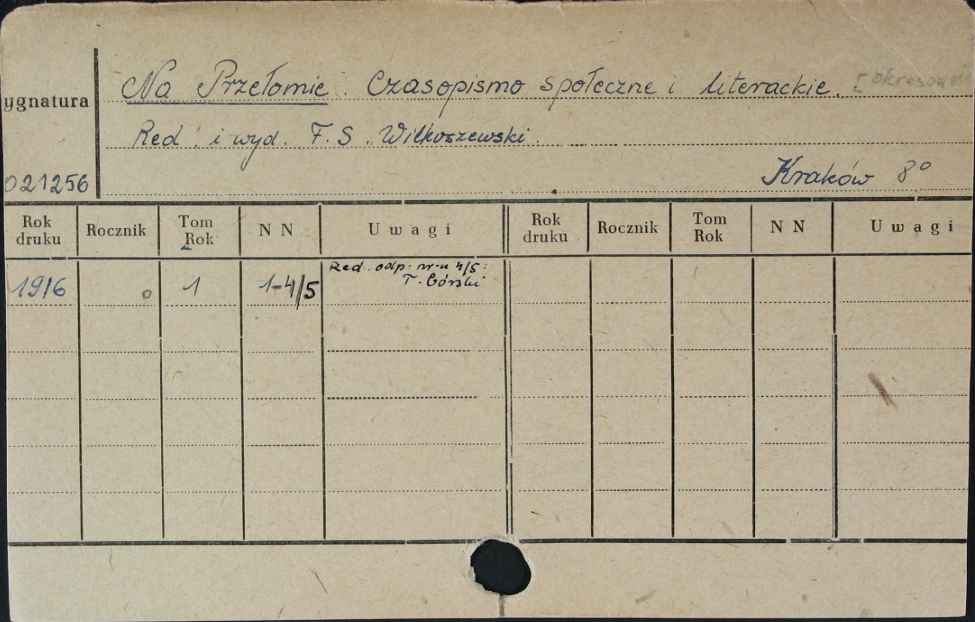 Na Przełomie. Czasopismo społeczne i literackie.
ygnatura
Red. i wyd. F. S. Wilkoszewski.
021256
Kraków 8°
Rok druku Rocznik Tom Rok N N Uwagi Rok druku Rocznik Tom Rok N N Uwagi
1916 0 1 1-4/5 Red. odp. nr-u 4/5:
T. Górski